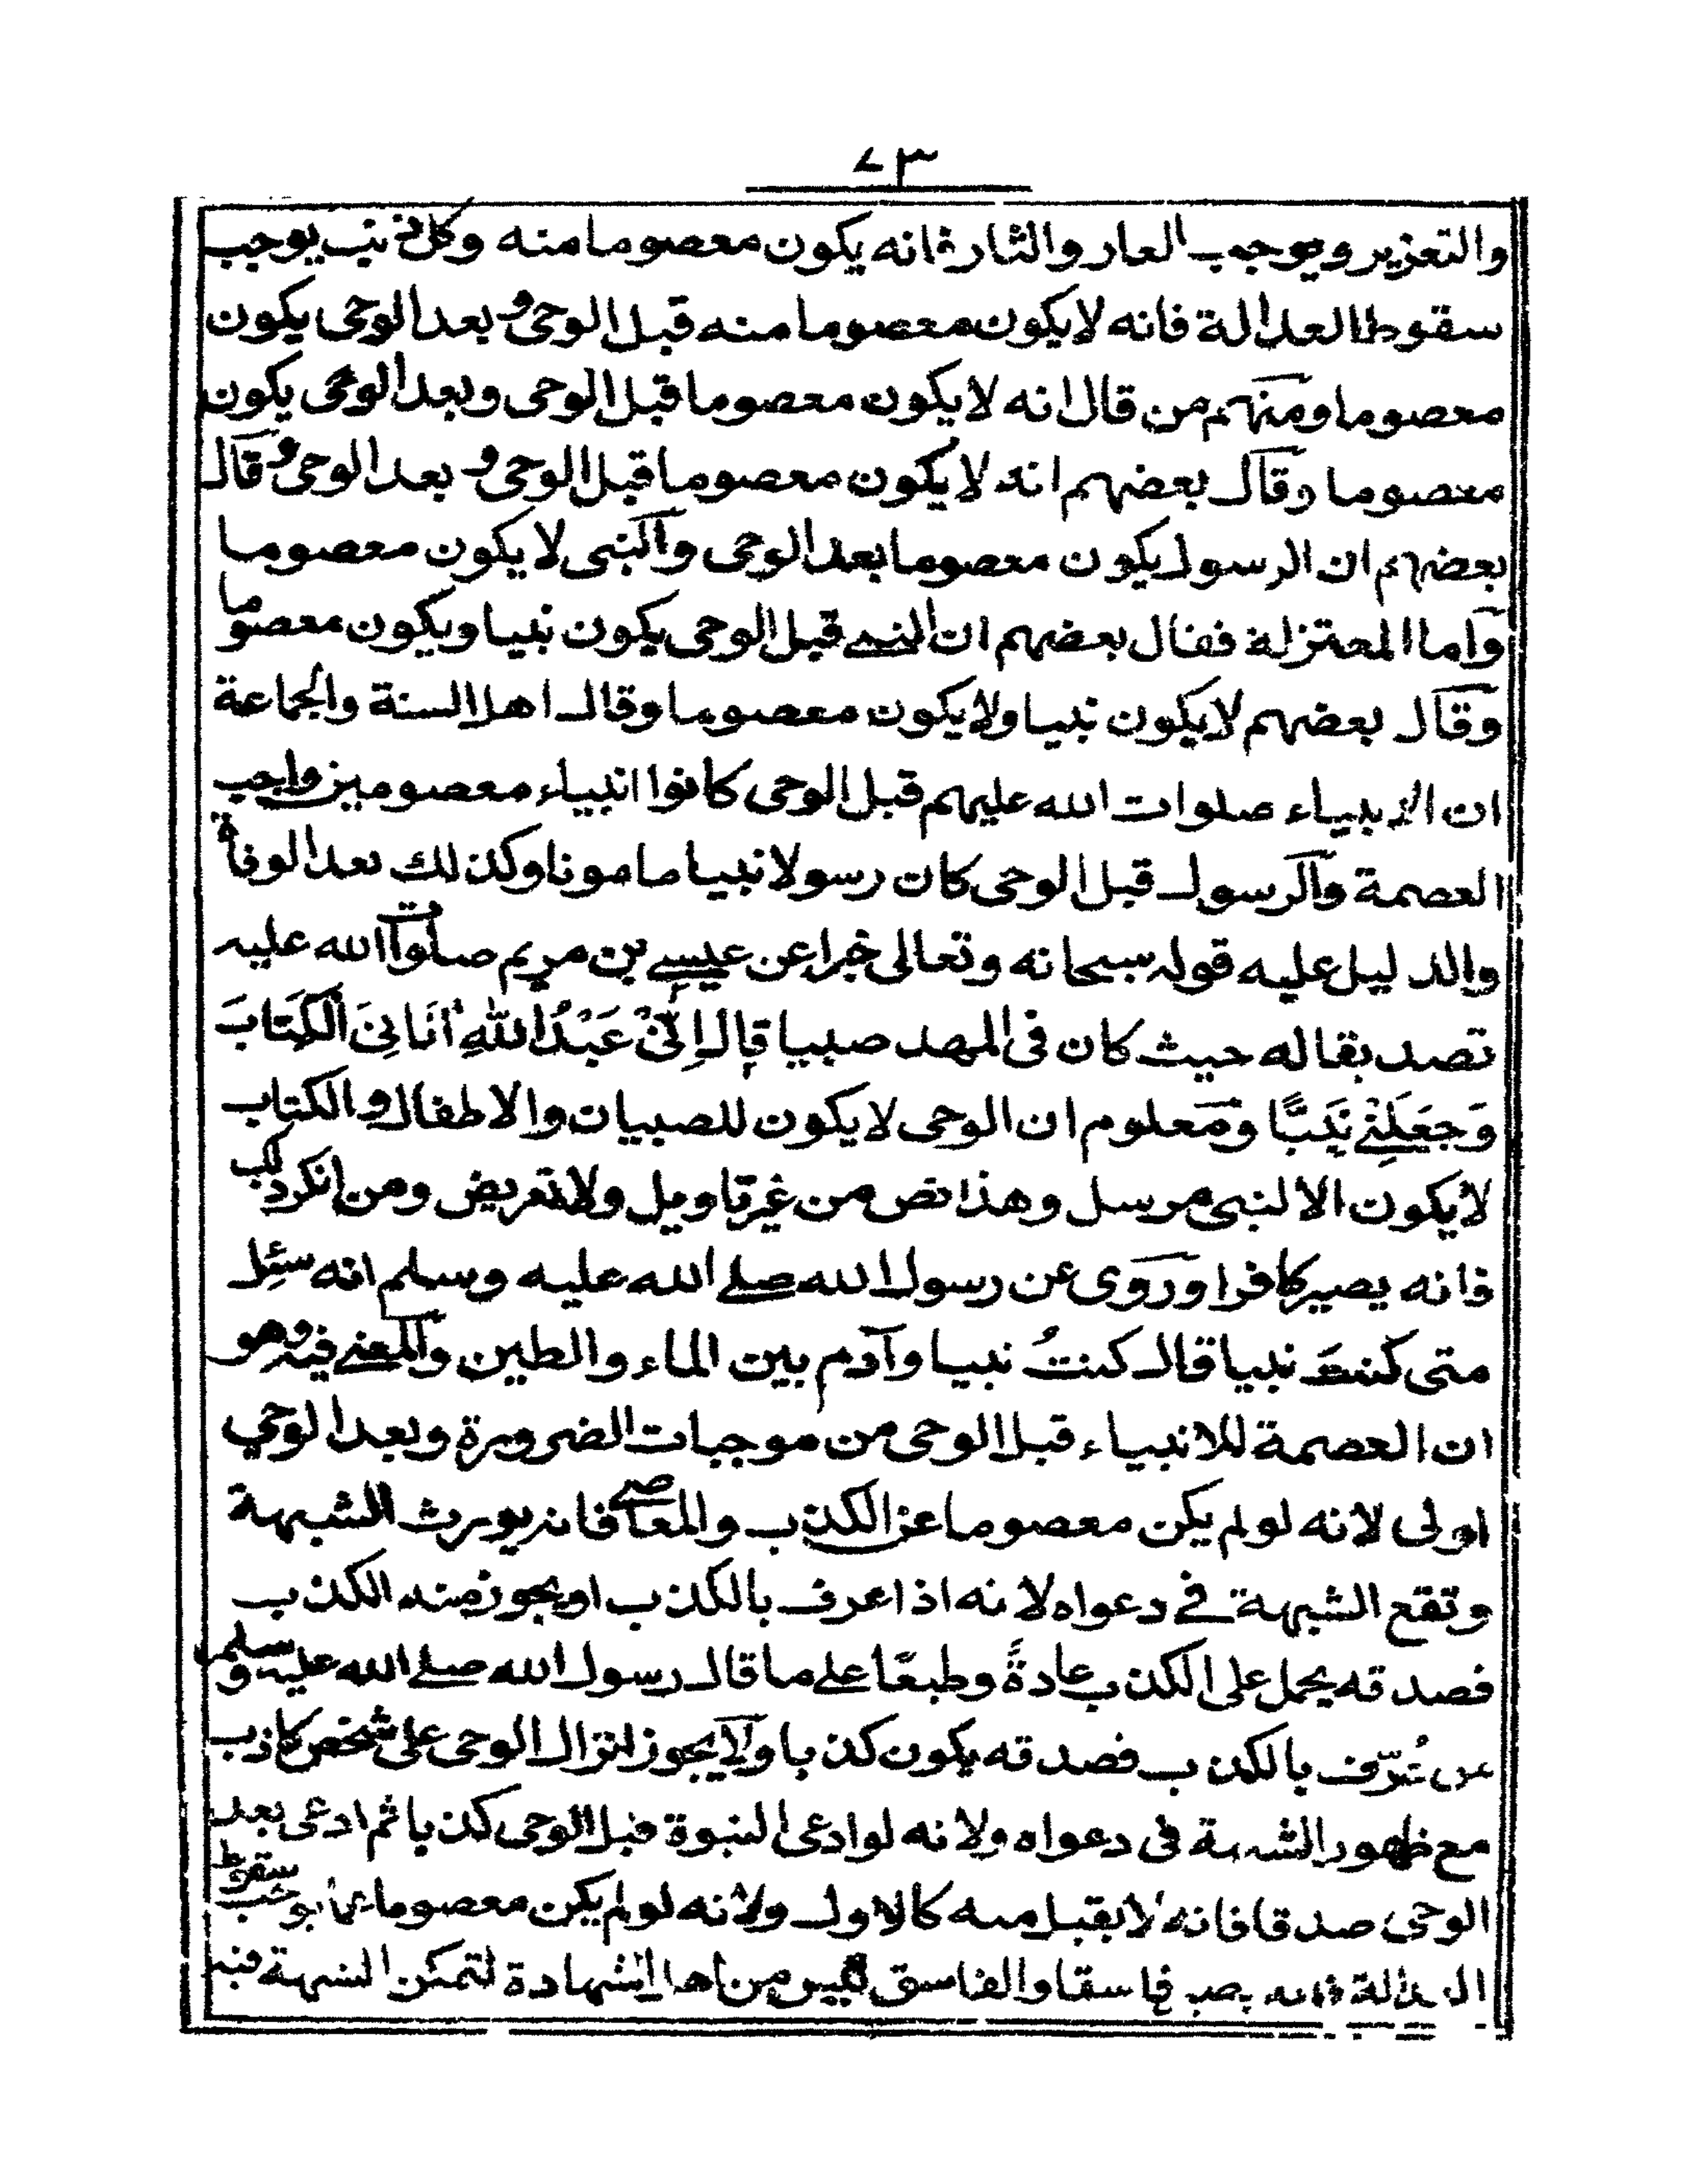 ٧٣
والتعزير ويوجب العار والثار فانه يكون معصوما منه وكل ذنب يوجب
سقوط العدالة فانه لا يكون معصوما منه قبل الوحى و بعد الوحى يكون
معصوما ومنهم من قال انه لا يكون معصوما قبل الوحى وبعد الوحى يكون
معصوما وقال بعضهم انه لا يكون معصوما قبل الوحى و بعد الوحى و قال
بعضهم ان الرسول يكون معصوما بعد الوحى والنبى لا يكون معصوما
واما المعتزلة فقال بعضهم ان النبى قبل الوحى يكون نبيا ويكون معصوما
وقال بعضهم لا يكون نبيا ولا يكون معصوما وقال اهل السنة والجماعة
ان الانبياء صلوات الله عليهم قبل الوحى كانوا انبياء معصومين واجب
العصمة والرسول قبل الوحى كان رسولا نبيا مامونا وكذلك بعد الوفاة
والدليل عليه قوله سبحانه وتعالى خبرا عن عيسى بن مريم صلوات الله عليه
تصديقا له حيث كان فى المهد صبيا قال اِنِّىْ عَبْدُ اللّٰهِ اٰتَانِىَ الْكِتَابَ
وَجَعَلَنِىْ نَبِيًّا ومعلوم ان الوحى لا يكون للصبيان والاطفال والكتاب
لا يكون الا لنبى مرسل وهذا نص من غير تاويل ولا تعريض ومن انكر ذلك
فانه يصير كافرا وروى عن رسول الله صلى الله عليه وسلم انه سئل
متى كنتَ نبيا قال كنتُ نبيا وآدم بين الماء والطين والمعنى فيه وهو
ان العصمة للانبياء قبل الوحى من موجبات الضرورة وبعد الوحي
اولى لانه لو لم يكن معصوما عن الكذب والمعاصى فانه يورث الشبهة
وتقع الشبهة في دعواه لانه اذا عرف بالكذب او يجوز منه الكذب
فصدقه يحمل على الكذب عادةً وطبعًا على ما قال رسول الله صلى الله عليه وسلم
من عُرّف بالكذب فصدقه يكون كذبا ولا يجوز انزال الوحى على شخص كاذب
مع ظهور الشبهة فى دعواه ولانه لو ادعى النبوة قبل الوحى كذبا ثم ادعى بعد
الوحى صدقا فانه لا يقبل منه كالاول ولانه لو لم يكن معصوما عما يوجب سقوط
العدالة فانه يصير فاسقا والفاسق ليس من اهل الشهادة لتمكن الشبهة فيه